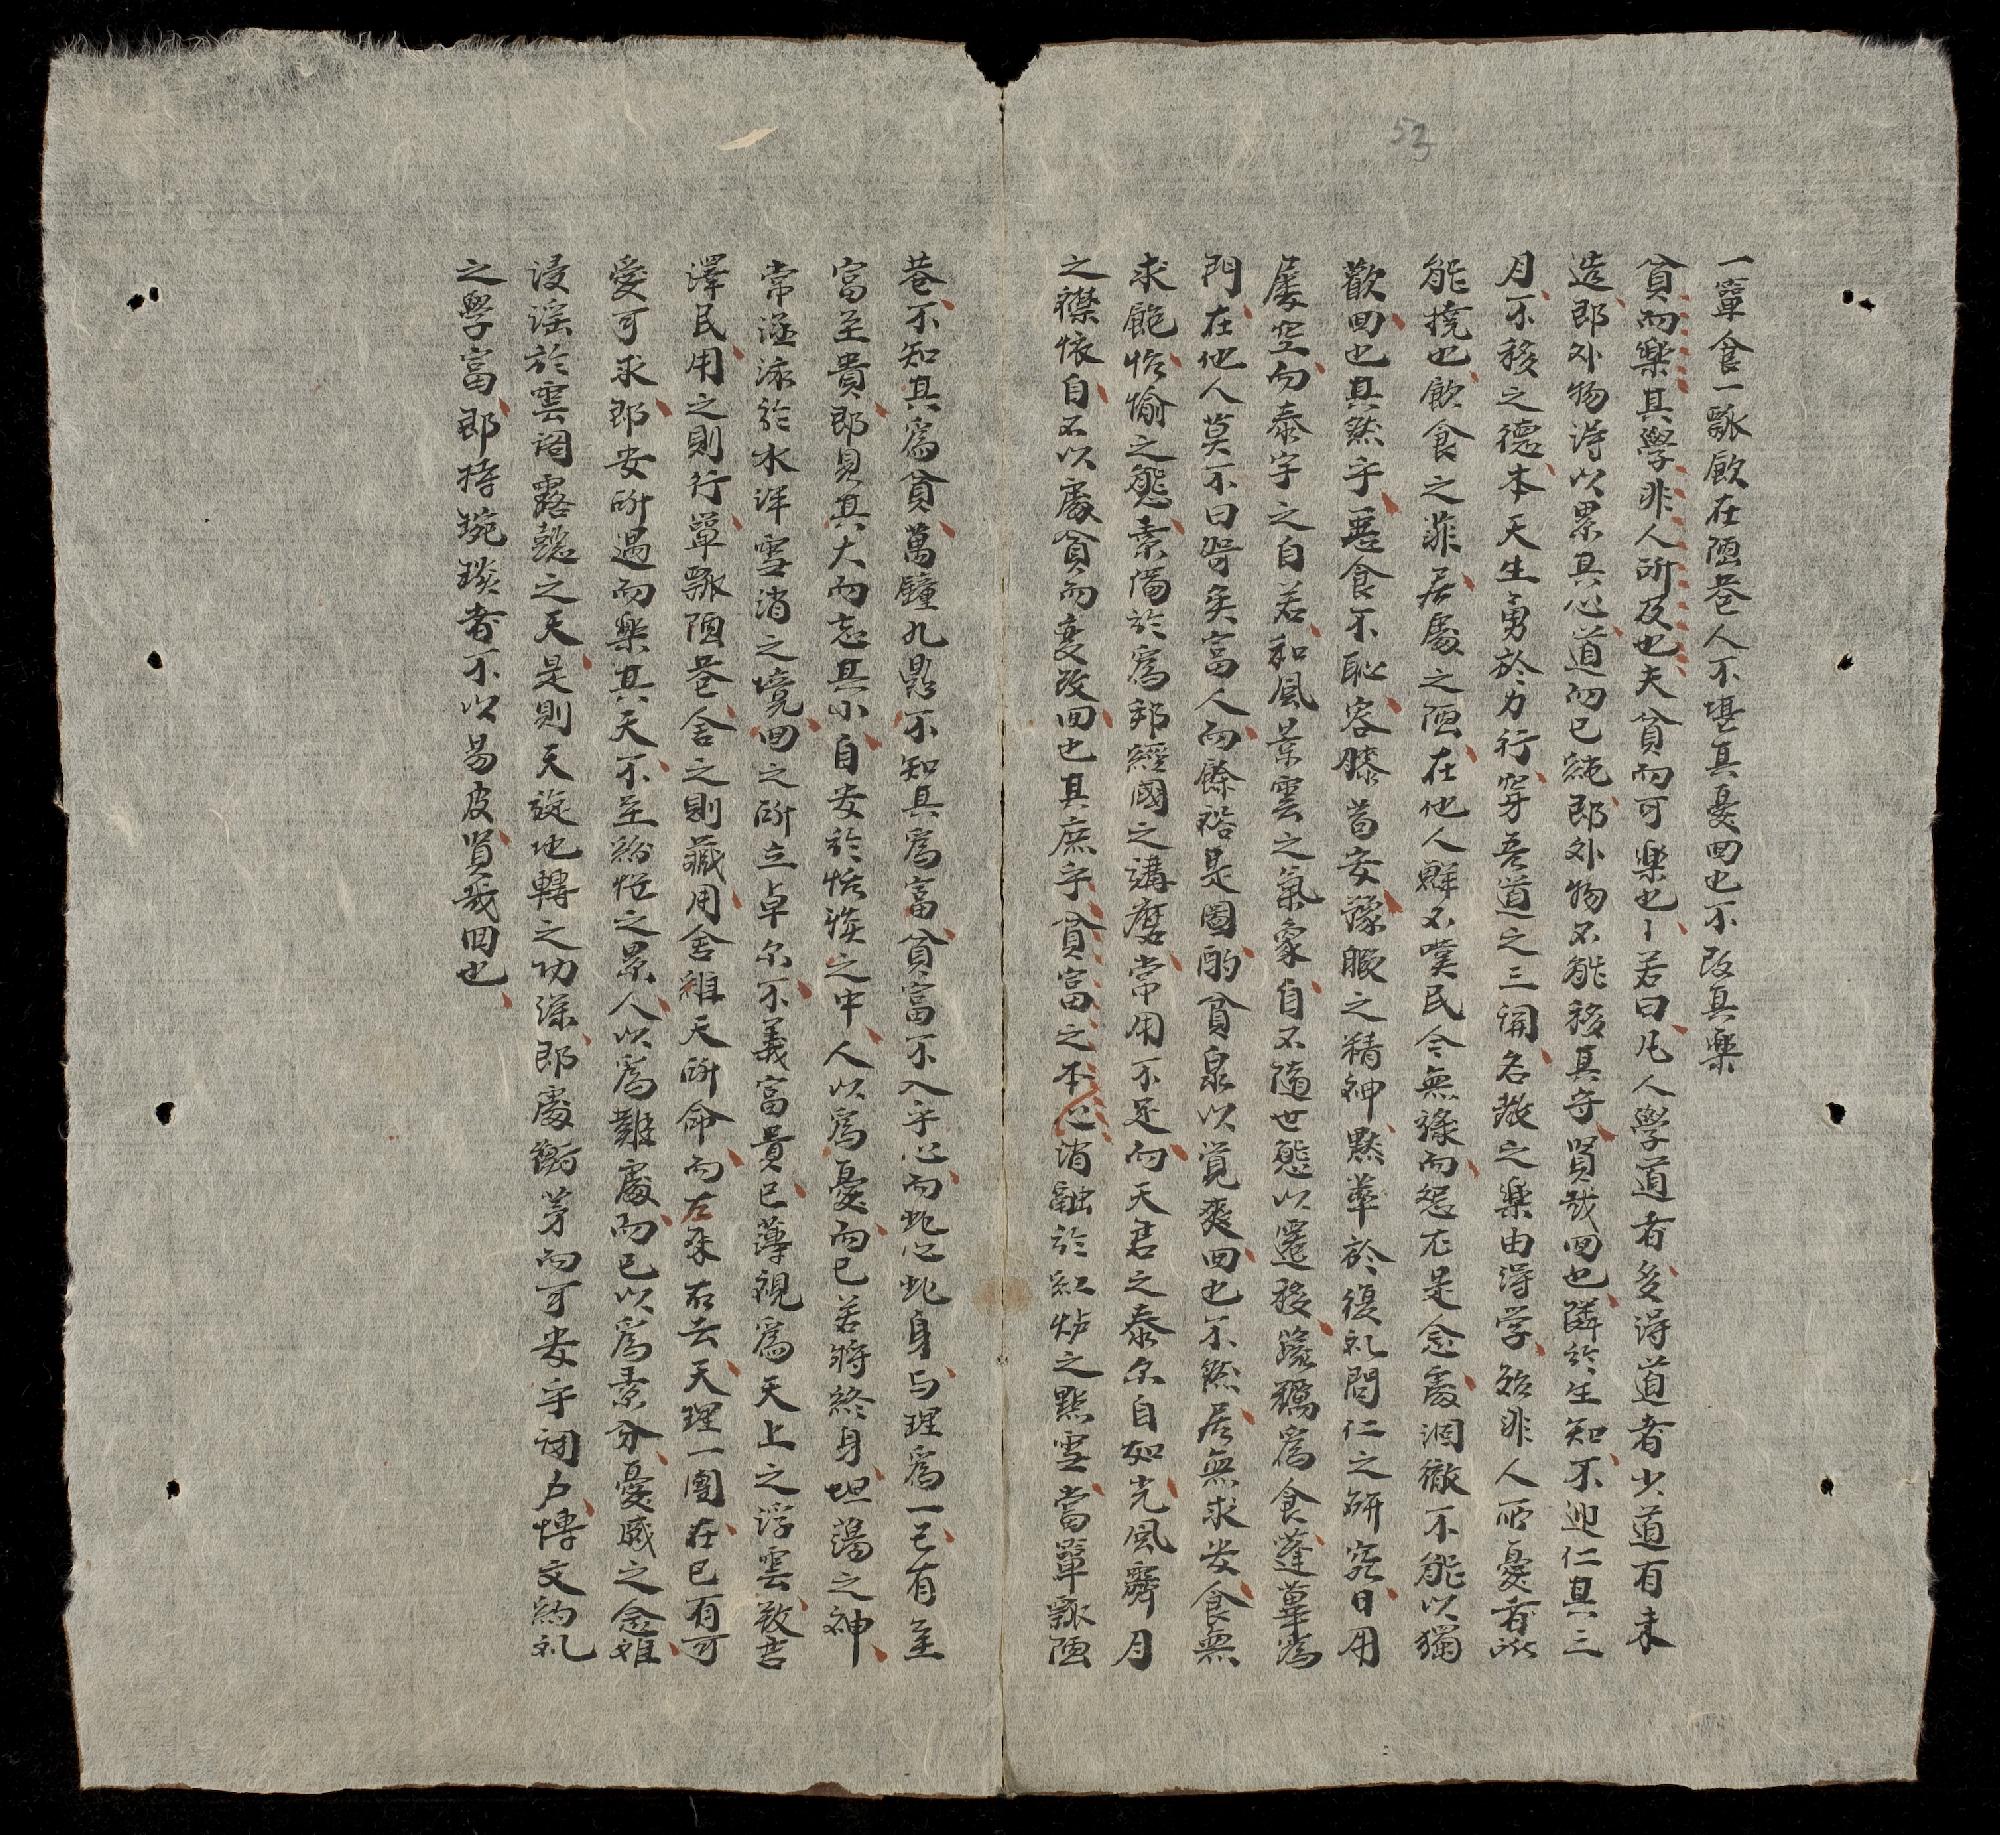 53
一簞食一瓢飲在陋巷人不堪其憂回也不改其樂
貧而樂其學非人所及也夫貧而可樂也若曰凡人學道者多得道者少道有未
造即外物得以累其心道而已純即外物不能移其守賢哉回也隣於生知不迎仁其三
月不移之德本天生勇於力行穿吾道之三関名教之樂由得学殆非人所憂者所
能撓也飲食之菲居處之陋在他人鮮不嘆民今無祿而怨尤是念處洞徹不能以獨
歡回也其然乎悪食不恥容膝苟安豫暇之精神黙萃於復礼問仁之研究日用
屢空而泰宇之自若和風景雲之氣象自不隨世態以遷移藜藿為食蓬蓽為
門在他人莫不曰哿矣富人而餘裕是圖酌貧泉以覚爽回也不然居無求安食無
求飽怡愉之態素偹於為邦經國之講磨常用不足而天君之泰尔自如光風霽月
之襟懐自不以處貧而变改回也其庶乎貧富之本心消融於紅炉之點雪當簞瓢陋
巷不知其為貧萬鐘九鼎不知其為富貧富不入乎心而此心此身与理為一已有至
富至貴即見其大而忘其小自安於恬淡之中人以為憂而已若將終身坦蕩之神
常涵泳於水泮雪消之境回之所立卓尔不義富貴已薄視為天上之浮雲致君
澤民用之則行簞瓢陋巷舍之則藏用舍組天所命而左來右去天理一團在已有可
愛可求即安所遇而樂其天不至紛悦之累人以為難處而已以為素分憂戚之念組
浸滛於雲闊露聽之天是則天旋地轉之功深即處衡茅而可安乎閉户博文約礼
之學富即持琬琰者不以易皮賢哉回也